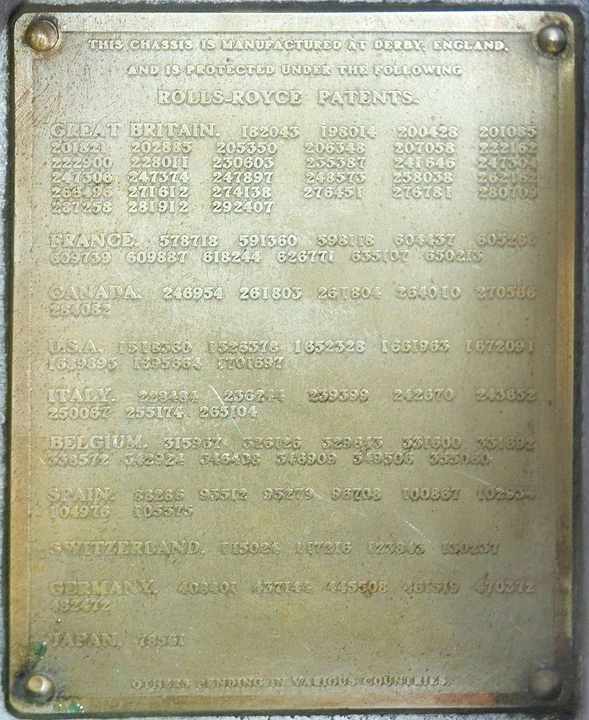 THIS CHASSIS IS MANUFACTURED AT DERBY, ENGLAND,
AND IS PROTECTED UNDER THE FOLLOWING
ROLLS-ROYCE PATENTS.
GREAT BRITAIN. 182043 198014 200428 201085
202885 205350 206348 207058 222162
222900 228011 230603 235387 241646 247304
247306 247374 247897 248573 258038 262162
271612 274138 276451 276781 280709
287258 281912 292407
FRANCE. 578718 591360 598118 604437
609739 609887 618244 626771 635107 650215
CANADA. 246954 261803 261804 264010 270566
284082
U.S.A. 1518360 1528378 1652328 1661963 1672091
1701697
ITALY. 228484 239399 242670 243852
250067 255174 265104
BELGIUM. 315967 326126 331600
346909 349506
SPAIN. 93512 95279 96708 100867
104976 105575
SWITZERLAND. 115024 117216
GERMANY. 437144 445508 470372
432472
JAPAN.
OTHERS PENDING IN VARIOUS COUNTRIES.